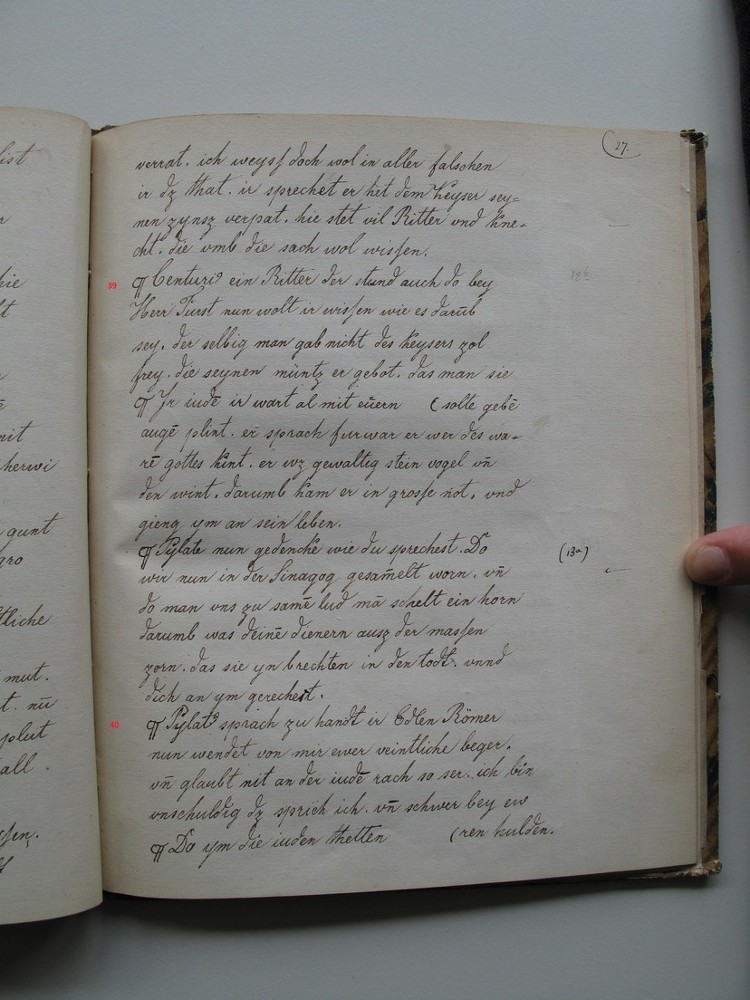 27.
verrat. ich weysſ doch wol in aller falschen
ir dz that. ir sprechet er het dem Keyser sey=
nen zynsz verpat. hie stet vil Ritter vnd kne=
cht. die vmb die sach wol wisſen.
39 ¶ Centuri⁹ ein Ritter der stund auch do bey
12b
Herr Fürst nun wolt ir wisſen wie es darūb
sey. der selbig man gab nicht des keysers zol
frey. die seynen müntz er gebot. das man sie
¶ Ir iudē ir wart al mit eüern (solte gebē
augē plint. er sprach furwar er wer des wa=
rē gottes kint. er wz gewaltig stein vogel vn̄
den wint. darumb kam er in grosſe not. vnd
gieng ym an sein leben.
¶ Pylate nun gedencke wie du sprechest. Do (13a)
wir nun in der Sinagog gesam̄elt worn. vn̄
do man vns zu samē lud mā schelt ein horn
darumb was deinē dienern ausz der masſen
zorn. das sie yn brechten in den todt. vnnd
dich an ym gerechest.
40 ¶ Pylat⁹ sprach zu handt ir Edlen Römer
nun wendet von mir ewer veintliche beger.
vn̄ glaubt nit an der iudē rach so ser. ich bin
vnschuldig dz sprich ich. vn̄ schwer bey ew
¶ Do ym die iuden thetten (ren hulden.
list
hie
nit
herwi
gunt
gro
tliche
mut.
t. nū
plut
all.